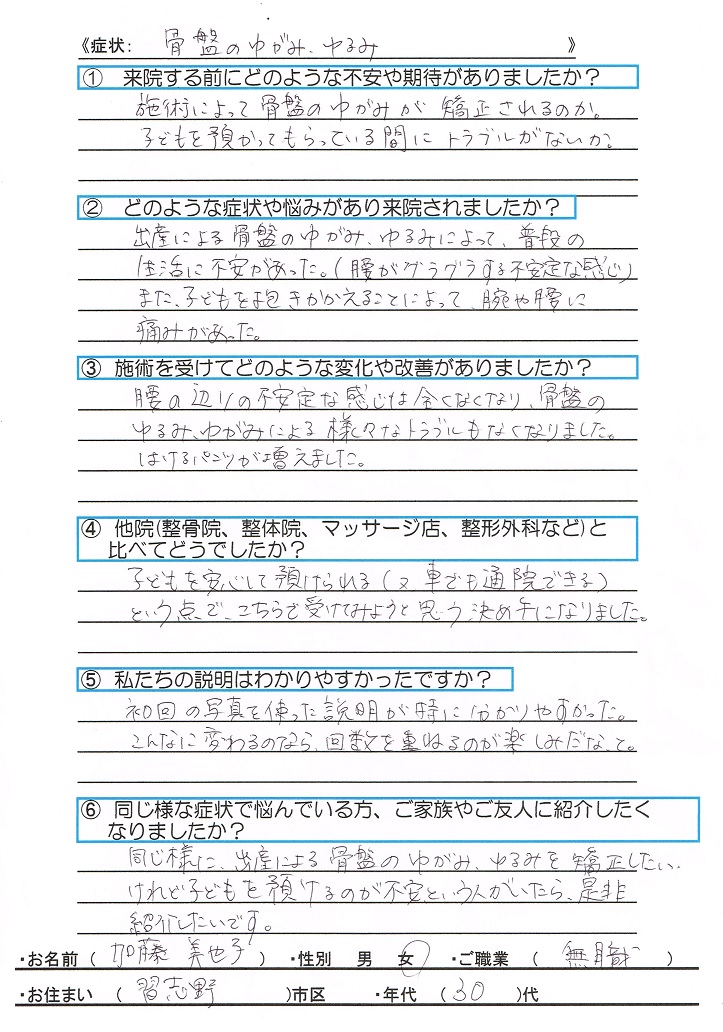 《症状: 骨盤のゆがみ、ゆるみ 》
① 来院する前にどのような不安や期待がありましたか？
施術によって骨盤のゆがみが矯正されるのか。
子どもを預かってもらっている間にトラブルがないか。
② どのような症状や悩みがあり来院されましたか？
出産による骨盤のゆがみ、ゆるみによって、普段の
生活に不安があった。(腰がグラグラする不安定な感じ)
また、子どもを抱きかかえることによって、腕や腰に
痛みがあった。
③ 施術を受けてどのような変化や改善がありましたか？
腰の辺りの不安定な感じは全くなくなり、骨盤の
ゆるみ、ゆがみによる様々なトラブルもなくなりました。
はけるパンツが増えました。
④ 他院(整骨院、整体院、マッサージ店、整形外科など)と
比べてどうでしたか？
子どもを安心して預けられる(又車でも通院できる)
という点で、こちらで受けてみようと思う決め手になりました。
⑤ 私たちの説明はわかりやすかったですか？
初回の写真を使った説明が特に分かりやすかった。
こんなに変わるのなら、回数を重ねるのが楽しみだな、と。
⑥ 同じ様な症状で悩んでいる方、ご家族やご友人に紹介したく
なりましたか？
同じ様に、出産による骨盤のゆがみ、ゆるみを矯正したい、
けれど子どもを預けるのが不安という人がいたら、是非
紹介したいです。
・お名前 ( 加藤 美也子 ) ・性別 男 女 ・ご職業 ( 無職 )
・お住まい ( 習志野 )市区 ・年代 (30 )代